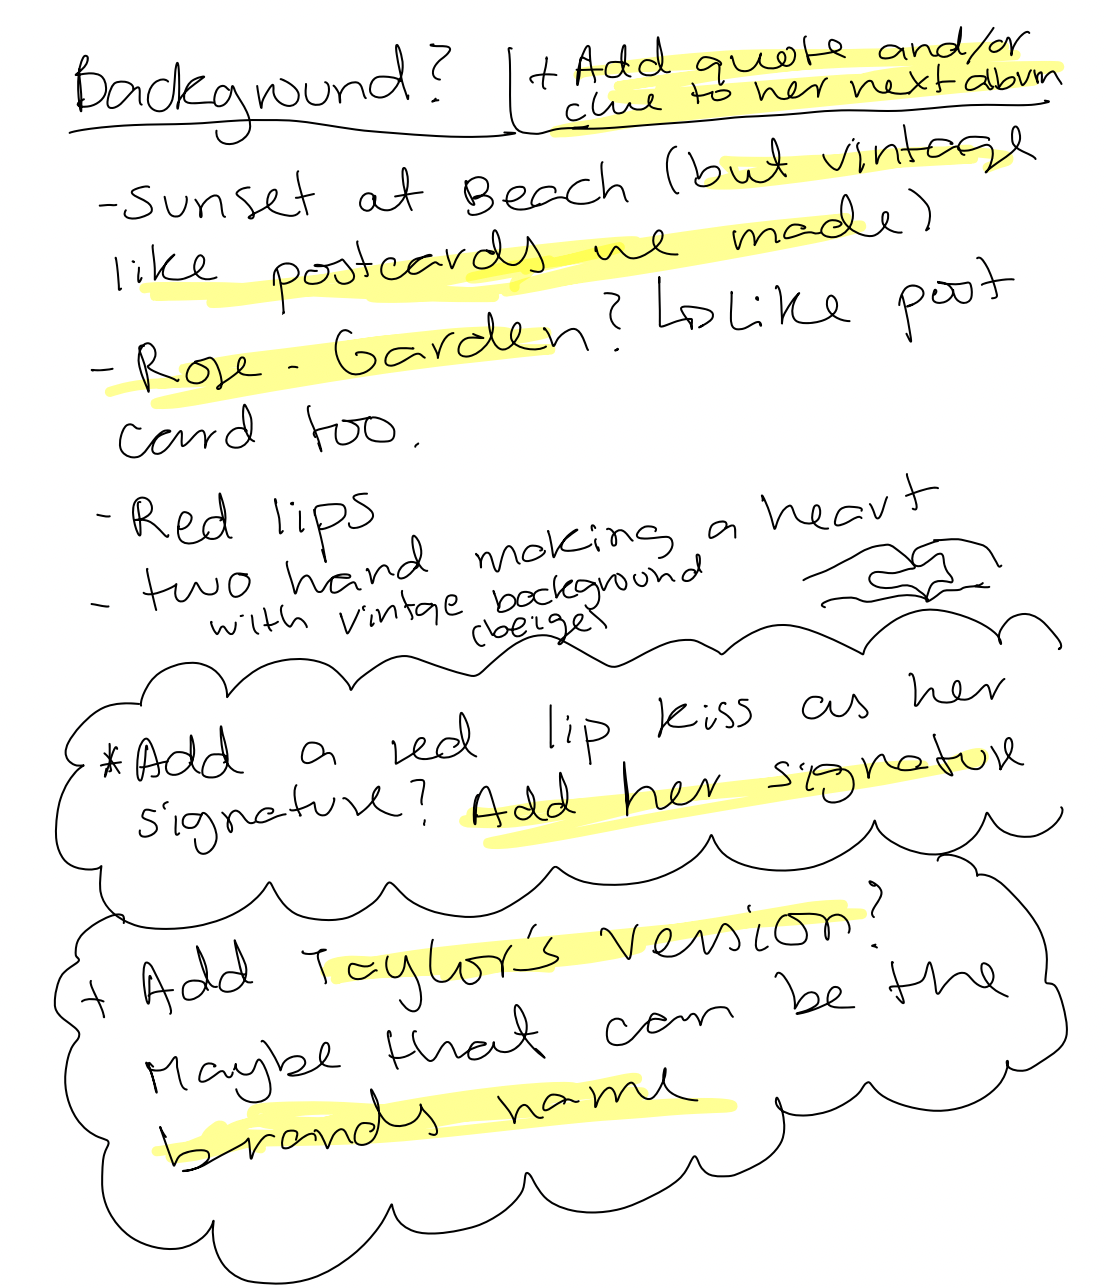 Background?
+ Add quote and/or
clue to her next album
- Sunset at Beach (but vintage
like postcards we made)
- Rose - Garden? ↳ Like post
card too.
- Red lips
- two hand making a heart
with vintage background
(beige)
* Add a red lip kiss as her
signature? Add her signature
+ Add Taylor's version?
Maybe that can be the
brands name